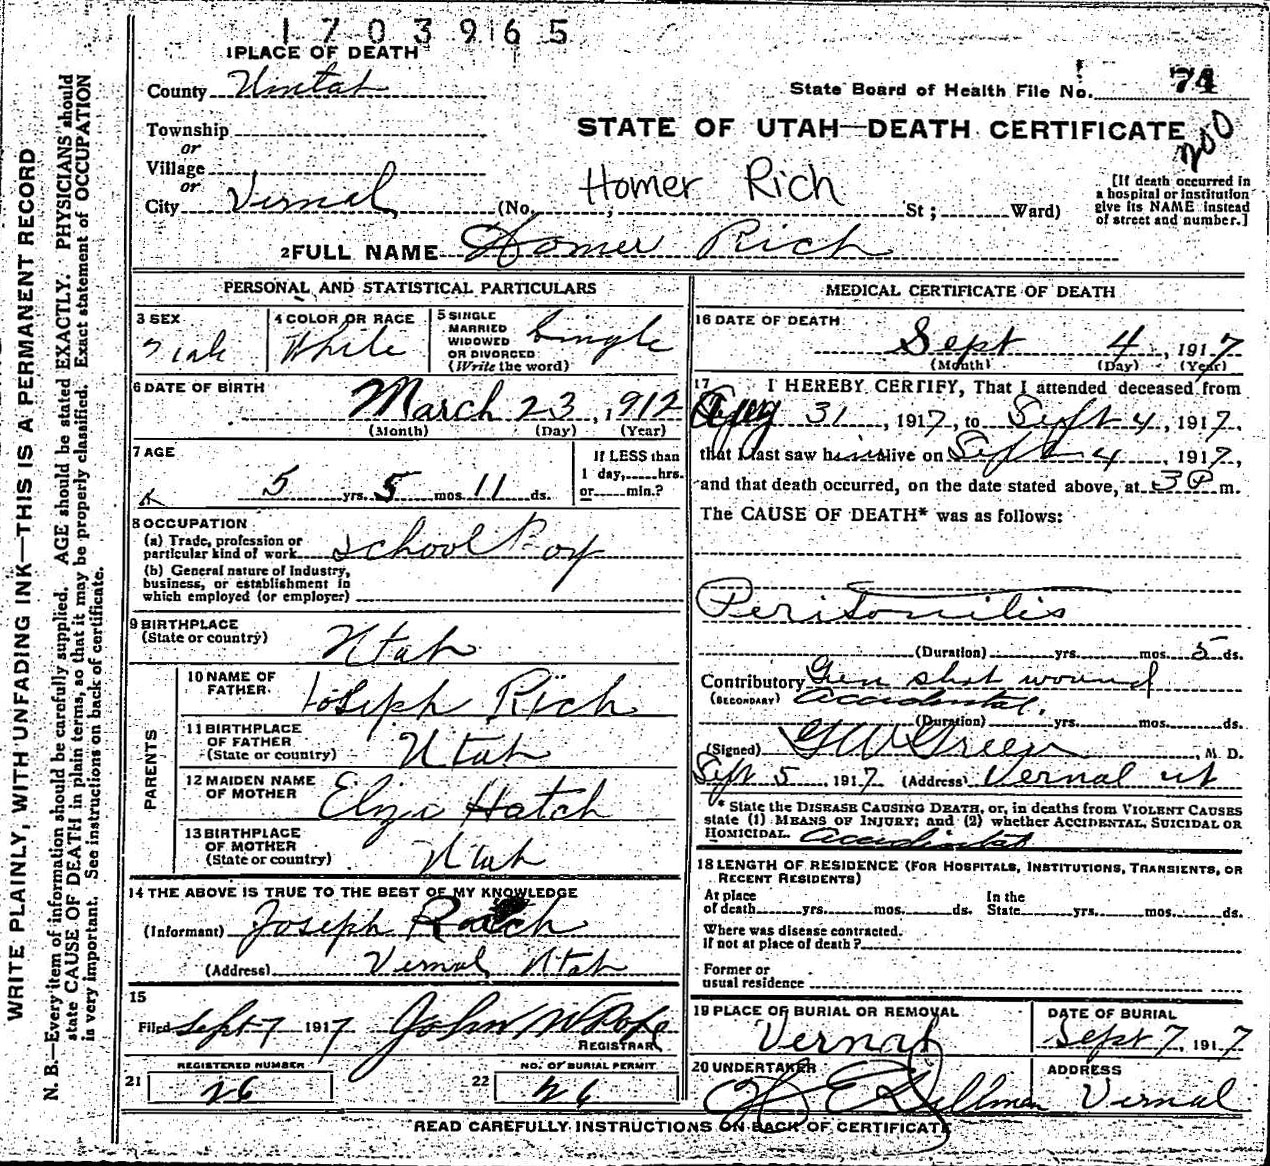 1703965
1 PLACE OF DEATH
County Uintah
State Board of Health File No. 74
Township
or
STATE OF UTAH—DEATH CERTIFICATE
200
Village
or
Homer Rich
City Vernal (No. , St ; Ward)
[If death occurred in
a hospital or institution
give its NAME instead
of street and number.]
2 FULL NAME Homer Rich
PERSONAL AND STATISTICAL PARTICULARS
3 SEX
Male
4 COLOR OR RACE
White
5 SINGLE
MARRIED
WIDOWED
OR DIVORCED
(Write the word)
Single
6 DATE OF BIRTH
March 23, 1912
(Month) (Day) (Year)
7 AGE
5 yrs. 5 mos. 11 ds.
If LESS than
1 day, hrs.
or min.?
8 OCCUPATION
(a) Trade, profession or
particular kind of work School Boy
(b) General nature of Industry,
business, or establishment in
which employed (or employer)
9 BIRTHPLACE
(State or country) Utah
PARENTS
10 NAME OF
FATHER Joseph Rich
11 BIRTHPLACE
OF FATHER
(State or country) Utah
12 MAIDEN NAME
OF MOTHER Eliza Hatch
13 BIRTHPLACE
OF MOTHER
(State or country) Utah
14 THE ABOVE IS TRUE TO THE BEST OF MY KNOWLEDGE
(Informant) Joseph
(Address) Vernal Utah
15
Filed Sept 7 1917 John W Pope
REGISTRAR
REGISTERED NUMBER
21 26
NO. OF BURIAL PERMIT
22 26
MEDICAL CERTIFICATE OF DEATH
16 DATE OF DEATH
Sept 4, 1917
(Month) (Day) (Year)
17 I HEREBY CERTIFY, That I attended deceased from
Aug 31, 1917, to Sept 4, 1917,
that I last saw him alive on Sept 4, 1917,
and that death occurred, on the date stated above, at 3 P m.
The CAUSE OF DEATH* was as follows:
Peritonitis
(Duration) yrs. mos. 5 ds.
Contributory Gun shot wound
(SECONDARY) accidental.
(Duration) yrs. mos. ds.
(Signed) G W Green, M. D.
Sept 5, 1917 (Address) Vernal ut
* State the DISEASE CAUSING DEATH, or, in deaths from VIOLENT CAUSES
state (1) MEANS OF INJURY; and (2) whether ACCIDENTAL, SUICIDAL OR
HOMICIDAL. Accidental
18 LENGTH OF RESIDENCE (FOR HOSPITALS, INSTITUTIONS, TRANSIENTS, OR
RECENT RESIDENTS)
At place
of death yrs. mos. ds.
In the
State yrs. mos. ds.
Where was disease contracted.
if not at place of death?
Former or
usual residence
19 PLACE OF BURIAL OR REMOVAL
Vernal
DATE OF BURIAL
Sept 7, 1917
20 UNDERTAKER
ADDRESS
Vernal
READ CAREFULLY INSTRUCTIONS ON BACK OF CERTIFICATE
WRITE PLAINLY, WITH UNFADING INK—THIS IS A PERMANENT RECORD
N. B.—Every item of information should be carefully supplied. AGE should be stated EXACTLY. PHYSICIANS should
state CAUSE OF DEATH in plain terms, so that it may be properly classified. Exact statement of OCCUPATION
is very important. See instructions on back of certificate.